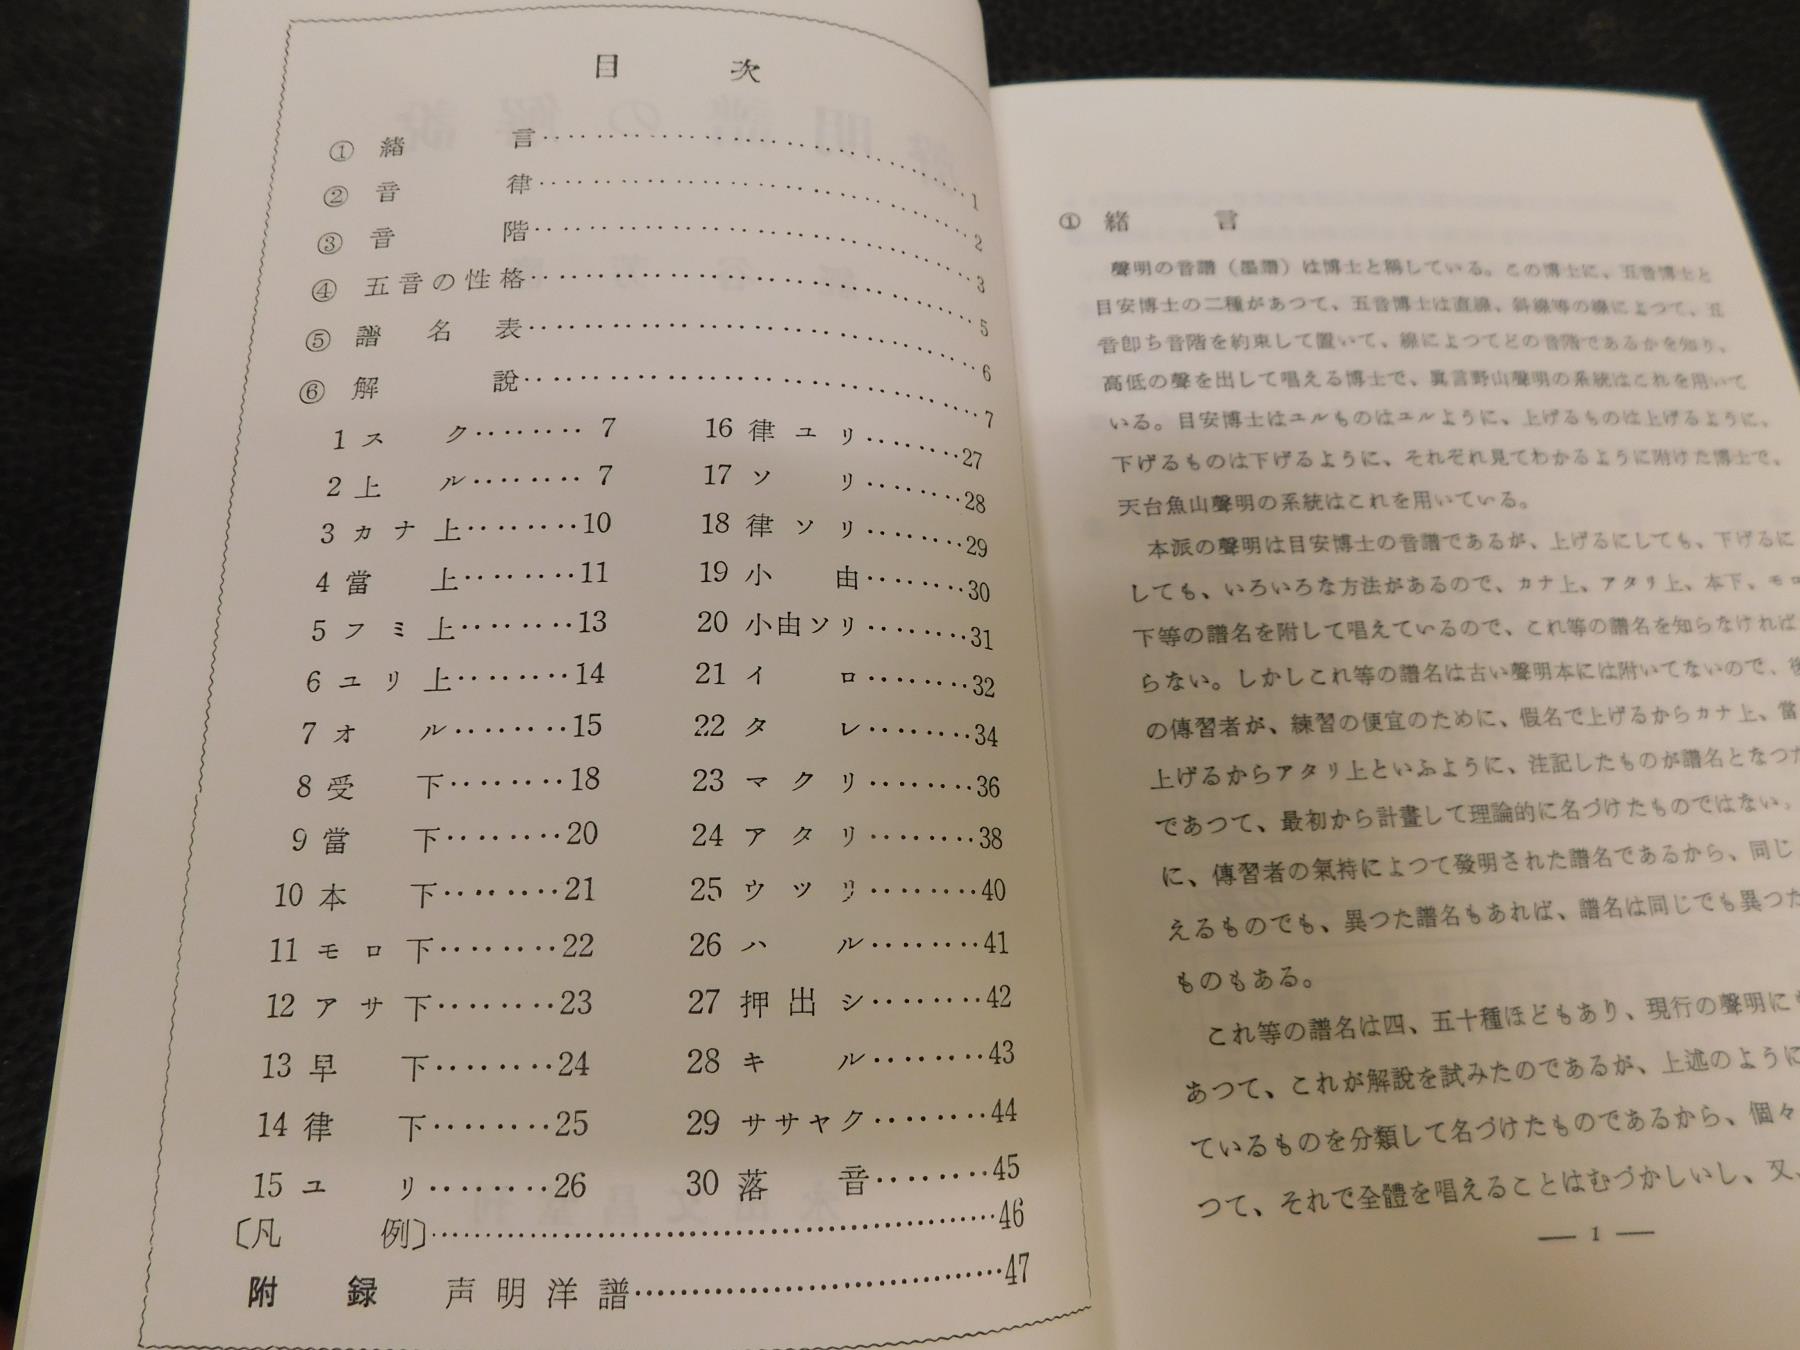 目次
① 緒言………1
② 音律………2
③ 音階………3
④ 五音の性格………5
⑤ 譜名表………6
⑥ 解說………7
1 スク………7
2 上ル………7
3 カナ上………10
4 當上………11
5 フミ上………13
6 ユリ上………14
7 オル………15
8 受下………18
9 當下………20
10 本下………21
11 モロ下………22
12 アサ下………23
13 早下………24
14 律下………25
15 ユリ………26
16 律ユリ………27
17 ソリ………28
18 律ソリ………29
19 小由………30
20 小由ソリ………31
21 イロ………32
22 タレ………34
23 マクリ………36
24 アタリ………38
25 ウツリ………40
26 ハル………41
27 押出シ………42
28 キル………43
29 ササヤク………44
30 落音………45
〔凡例〕………46
附録 声明洋譜………47
① 緒言
聲明の音譜（墨譜）は博士と稱している。この博士に、五音博士と
目安博士の二種があつて、五音博士は直線、斜線等の線によつて、五
音卽ち音階を約束して置いて、線によつてどの音階であるかを知り、
高低の聲を出して唱える博士で、眞言野山聲明の系統はこれを用いて
いる。目安博士はユルものはユルように、上げるものは上げるように、
下げるものは下げるように、それぞれ見てわかるように附けた博士で、
天台魚山聲明の系統はこれを用いている。
本派の聲明は目安博士の音譜であるが、上げるにしても、下げるに
しても、いろいろな方法があるので、カナ上、アタリ上、本下、モロ
下等の譜名を附して唱えているので、これ等の譜名を知らなければ
らない。しかしこれ等の譜名は古い聲明本には附いてないので、後
の傳習者が、練習の便宜のために、假名で上げるからカナ上、當
上げるからアタリ上といふように、注記したものが譜名となつた
であつて、最初から計畫して理論的に名づけたものではない。
に、傳習者の氣持によつて發明された譜名であるから、同じ
えるものでも、異つた譜名もあれば、譜名は同じでも異つた
ものもある。
これ等の譜名は四、五十種ほどもあり、現行の聲明にも
あつて、これが解說を試みたのであるが、上述のように
ているものを分類して名づけたものであるから、個々
つて、それで全體を唱えることはむづかしいし、又、
— 1 —